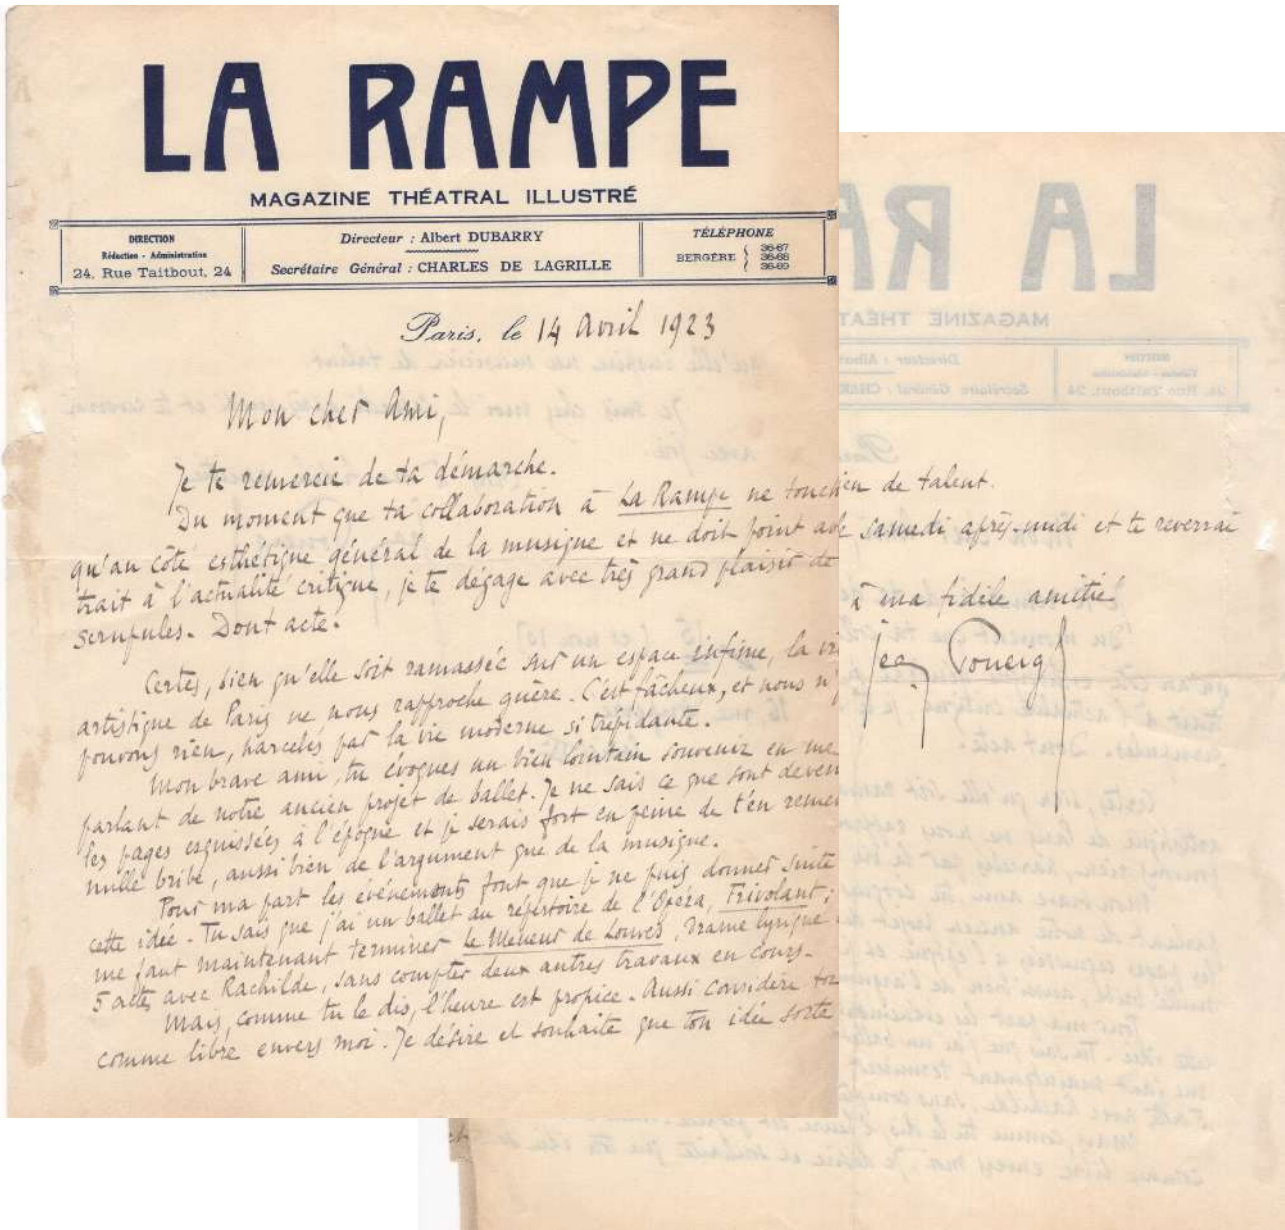 LA RAMPE
MAGAZINE THÉATRAL ILLUSTRÉ
DIRECTION
Rédaction - Administration
24, Rue Taitbout, 24
Directeur : Albert DUBARRY
Secrétaire Général : CHARLES DE LAGRILLE
TÉLÉPHONE
BERGÈRE { 36-67
36-68
36-69
Paris, le 14 Avril 1923
Mon cher Ami,
Je te remercie de ta démarche.
Du moment que ta collaboration à La Rampe ne touch
qu'au côté esthétique général de la musique et ne doit point a
trait à l'actualité critique, je te dégage avec très grand plaisir de
scrupules. Dont acte.
Certes, bien qu'elle soit ramassée sur un espace infime, la vi
artistique de Paris ne nous rapproche guère. C'est fâcheux, et nous n'y
pouvons rien, harcelés par la vie moderne si trépidante.
Mon brave ami, tu évoques un bien lointain souvenir en me
parlant de notre ancien projet de ballet. Je ne sais ce que sont deven
les pages esquissées à l'époque et je serais fort en peine de t'en reme
nulle bribe, aussi bien de l'argument que de la musique.
Pour ma part les événements font que je ne puis donner suite
cette idée. Tu sais que j'ai un ballet au répertoire de l'Opéra, Frivolant ;
me faut maintenant terminer Le Meneur de Louves, drame lyrique
5 actes avec Rachilde, sans compter deux autres travaux en cours.
Mais, comme tu le dis, l'heure est propice. Aussi considère to
comme libre envers moi. Je désire et souhaite que ton idée sorte
ien de talent.
le samedi après-midi et te reverrai
à ma fidèle amitié
Jean Poueigh